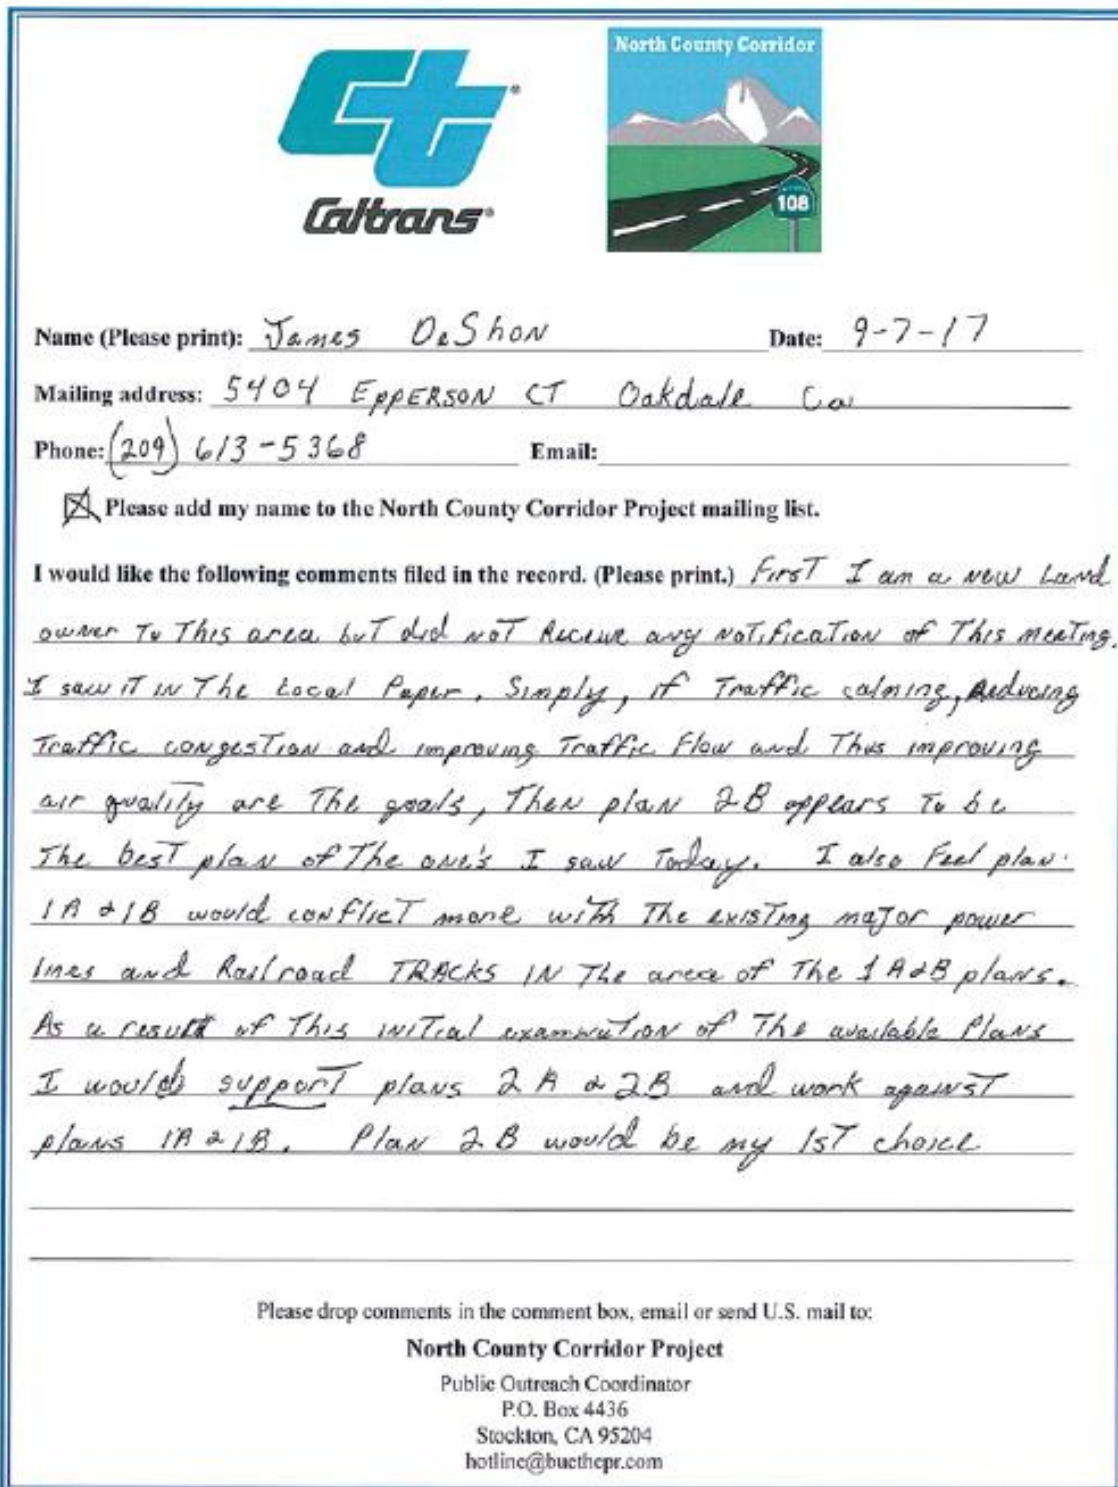 Ct
Caltrans
North County Corridor
108
Name (Please print): James DeShon Date: 9-7-17
Mailing address: 5404 EPPERSON CT Oakdale Ca
Phone: (209) 613-5368 Email:
Please add my name to the North County Corridor Project mailing list.
I would like the following comments filed in the record. (Please print.) First I am a new Land
owner To This area but did not Receive any notification of This meeting.
I saw it in The Local Paper. Simply, if Traffic calming, Reducing
Traffic congestion and improving Traffic Flow and Thus improving
air quality are The goals, Then plan 2B appears To be
The best plan of The one's I saw Today. I also Feel plan
1A & 1B would conflict more with The existing major power
lines and Railroad TRACKS IN The area of The 1A&B plans.
As a result of This initial examination of The available Plans
I would support plans 2A & 2B and work against
plans 1A & 1B. Plan 2B would be my 1st choice
Please drop comments in the comment box, email or send U.S. mail to:
North County Corridor Project
Public Outreach Coordinator
P.O. Box 4436
Stockton, CA 95204
hotline@buethepr.com